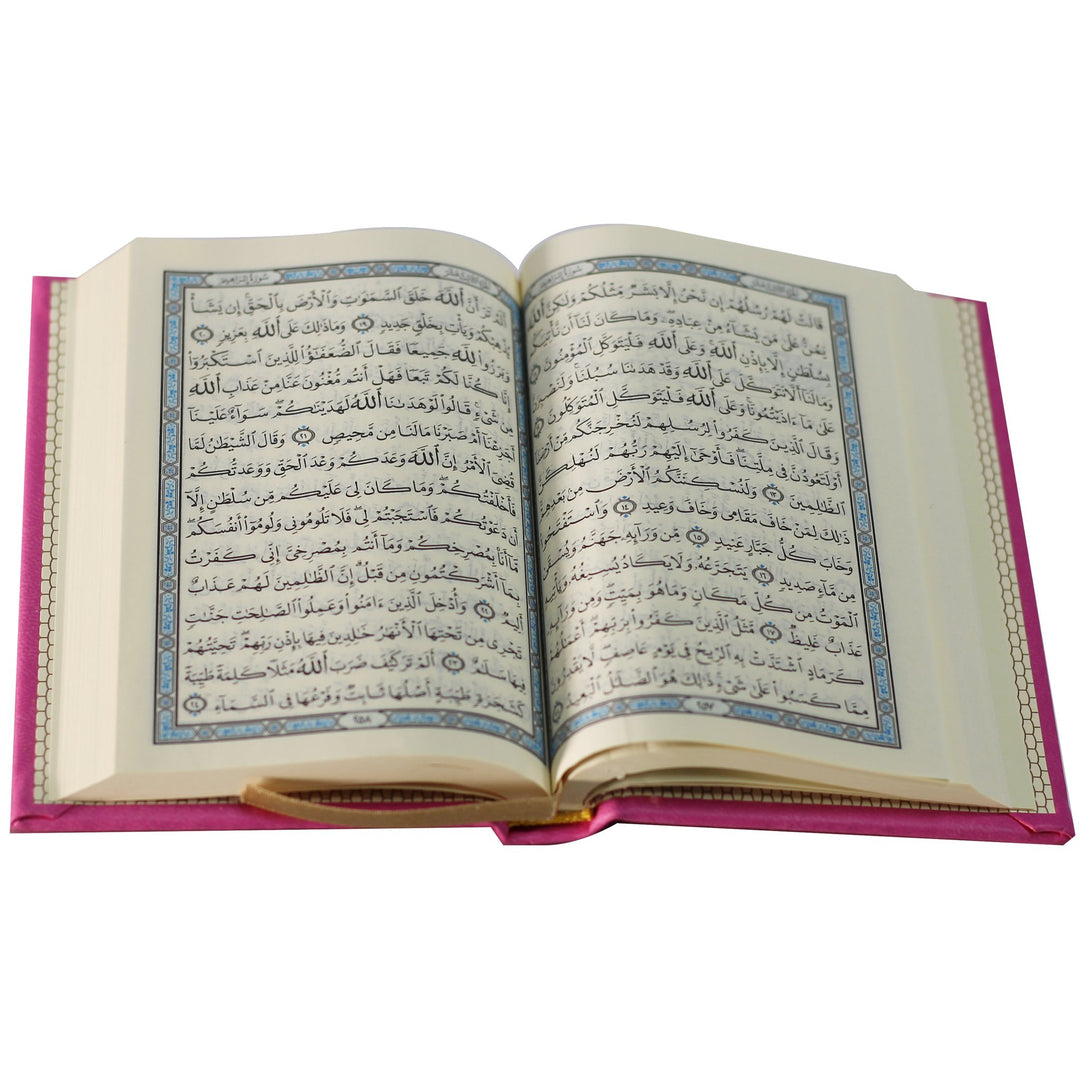 سورة إبراهيم
قالت لهم رسلهم إن نحن إلا بشر مثلكم ولكن الله
يمن على من يشاء من عباده وما كان لنا أن نأتيكم
بسلطن إلا بإذن الله وعلى الله فليتوكل المؤمنون
وما لنا ألا نتوكل على الله وقد هدىنا سبلنا ولنصبرن
على ما ءاذيتمونا وعلى الله فليتوكل المتوكلون
وقال الذين كفروا لرسلهم لنخرجنكم من أرضنا
أو لتعودن في ملتنا فأوحى إليهم ربهم لنهلكن
الظلمين ١٣ ولنسكننكم الأرض من بعدهم
ذلك لمن خاف مقامى وخاف وعيد ١٤ واستفتحوا
وخاب كل جبار عنيد ١٥ من ورائه جهنم ويسقى
من ماء صديد ١٦ يتجرعه ولا يكاد يسيغه ويأتيه
الموت من كل مكان وما هو بميت ومن ورائه
عذاب غليظ ١٧ مثل الذين كفروا بربهم أعملهم
كرماد اشتدت به الريح في يوم عاصف لا يقدرون
مما كسبوا على شىء ذلك هو الضلل البعيد
٢٥٧
سورة إبراهيم
ألم تر أن الله خلق السموت والأرض بالحق إن يشأ
يذهبكم ويأت بخلق جديد ١٩ وما ذلك على الله بعزيز ٢٠
وبرزوا لله جميعا فقال الضعفؤا للذين استكبروا
إنا كنا لكم تبعا فهل أنتم مغنون عنا من عذاب الله
من شىء قالوا لو هدىنا الله لهدينكم سواء علينا
أجزعنا أم صبرنا ما لنا من محيص ٢١ وقال الشيطن لما
قضى الأمر إن الله وعدكم وعد الحق ووعدتكم
فأخلفتكم وما كان لى عليكم من سلطن إلا
أن دعوتكم فاستجبتم لى فلا تلومونى ولوموا أنفسكم
ما أنا بمصرخكم وما أنتم بمصرخى إنى كفرت
بما أشركتمون من قبل إن الظلمين لهم عذاب
أليم ٢٢ وأدخل الذين ءامنوا وعملوا الصلحت جنت
تجرى من تحتها الأنهر خلدين فيها بإذن ربهم تحيتهم
فيها سلم ٢٣ ألم تر كيف ضرب الله مثلا كلمة طيبة
كشجرة طيبة أصلها ثابت وفرعها فى السماء ٢٤
٢٥٨